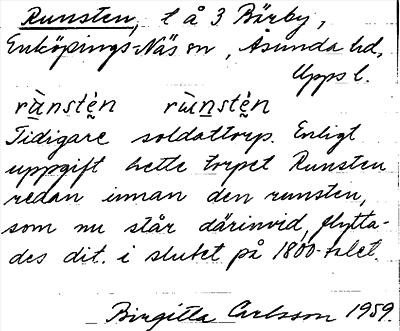 Runsten, t å 3 Bärby,
Enköpings-Näs sn, Åsunda hd,
Upps l.
rùnstén rùnstén
Tidigare soldattorp. Enligt
uppgift hette torpet Runsten
redan innan den runsten,
som nu står därinvid, flytta-
des dit. i slutet på 1800-talet.
Birgitta Carlsson 1959.